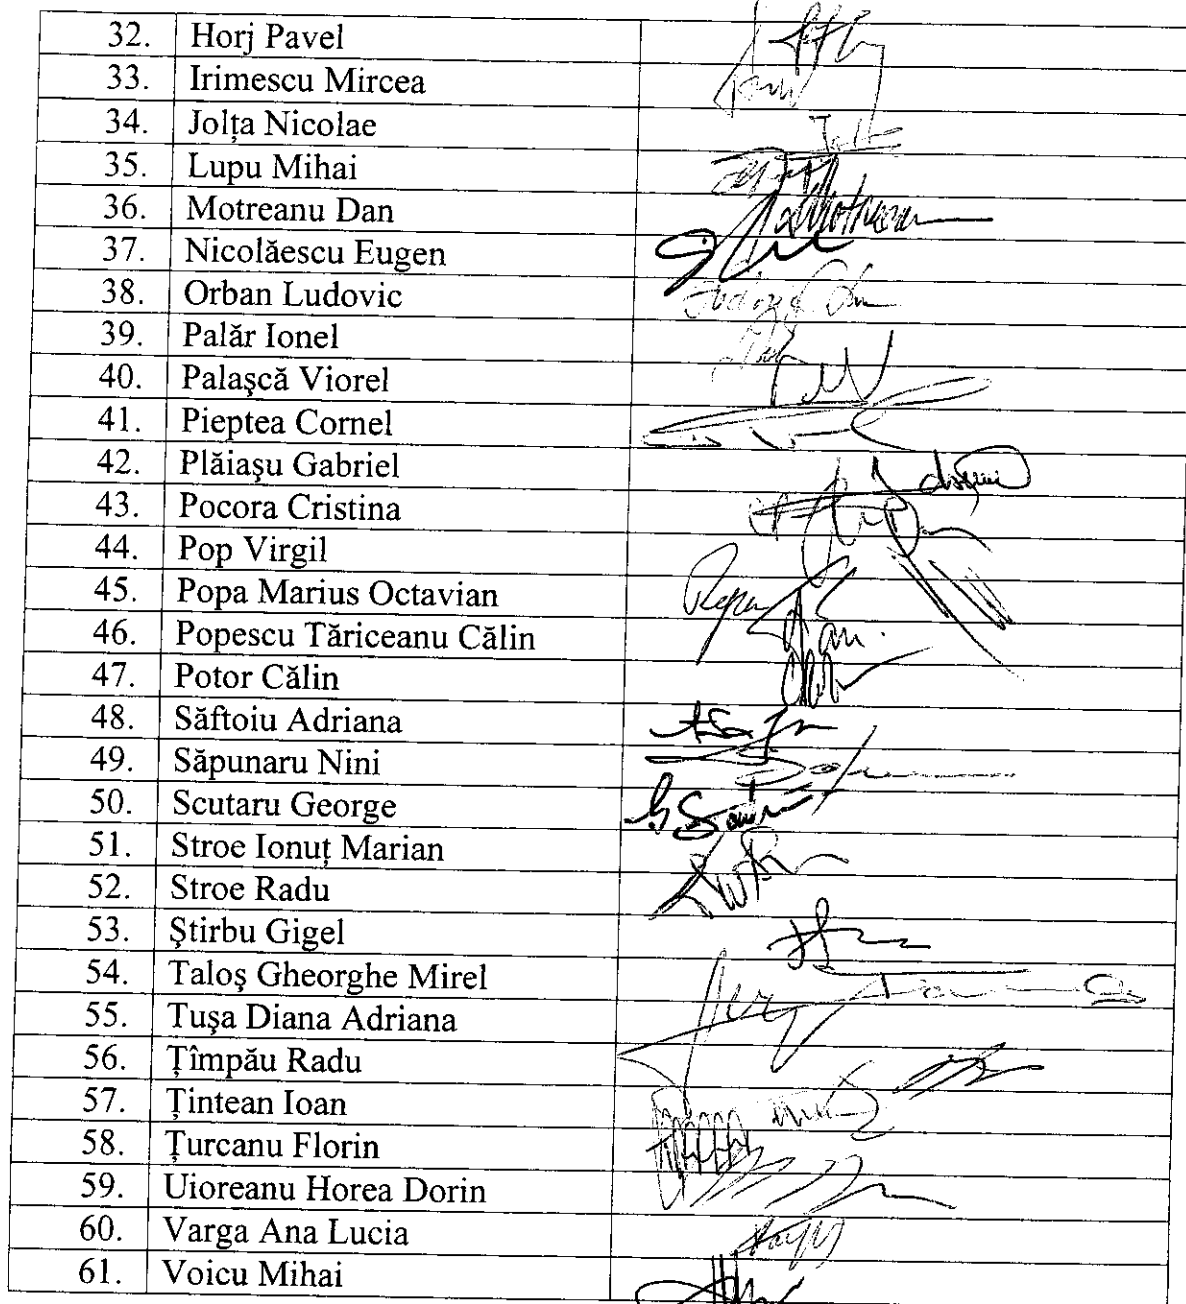 32. Horj Pavel
33. Irimescu Mircea
34. Jolța Nicolae
35. Lupu Mihai
36. Motreanu Dan
37. Nicolăescu Eugen
38. Orban Ludovic
39. Palăr Ionel
40. Palaşcă Viorel
41. Pieptea Cornel
42. Plăiaşu Gabriel
43. Pocora Cristina
44. Pop Virgil
45. Popa Marius Octavian
46. Popescu Tăriceanu Călin
47. Potor Călin
48. Săftoiu Adriana
49. Săpunaru Nini
50. Scutaru George
51. Stroe Ionuț Marian
52. Stroe Radu
53. Ştirbu Gigel
54. Taloş Gheorghe Mirel
55. Tuşa Diana Adriana
56. Țîmpău Radu
57. Țintean Ioan
58. Țurcanu Florin
59. Uioreanu Horea Dorin
60. Varga Ana Lucia
61. Voicu Mihai